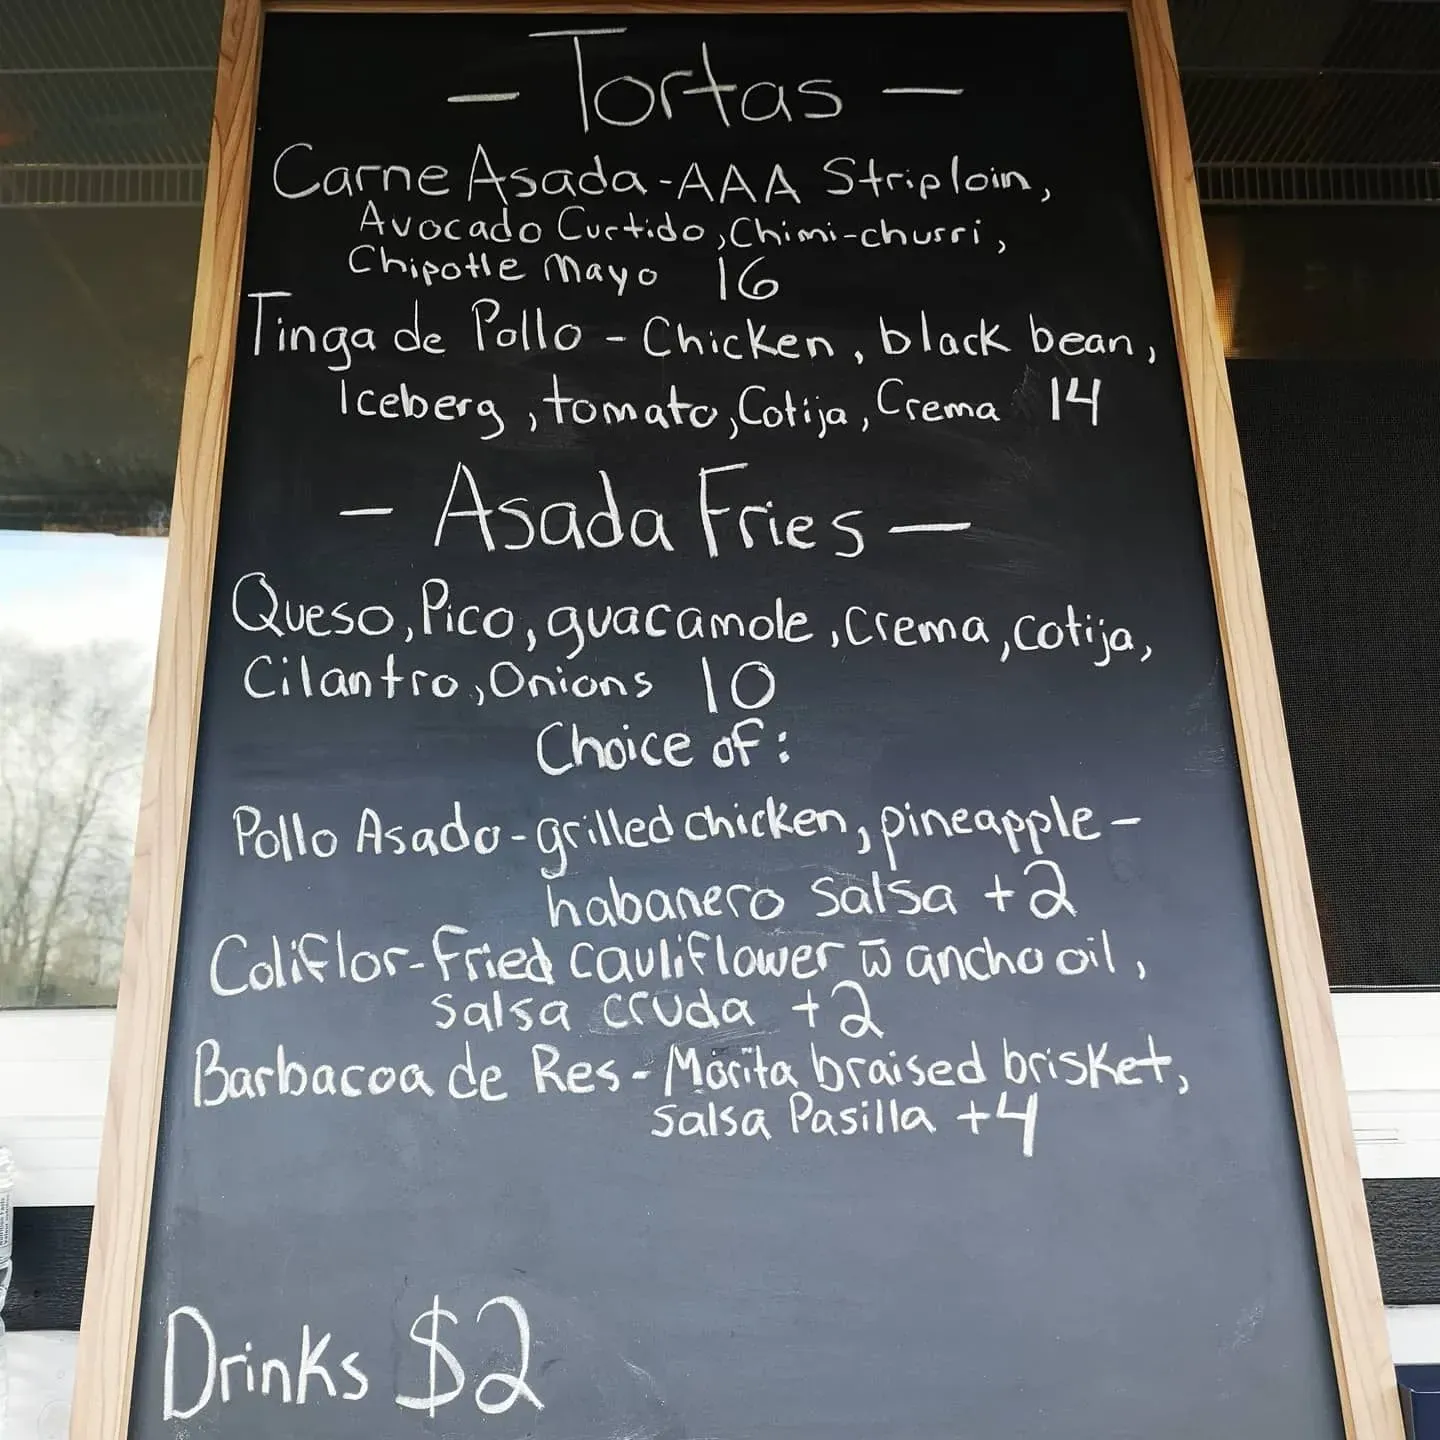 - Tortas -
Carne Asada - AAA Striploin,
Avocado Curtido, Chimi-churri,
Chipotle Mayo 16
Tinga de Pollo - Chicken, black bean,
Iceberg, tomato, Cotija, Crema 14
- Asada Fries -
Queso, Pico, guacamole, Crema, cotija,
Cilantro, Onions 10
Choice of:
Pollo Asado - grilled chicken, pineapple -
habanero salsa +2
Coliflor - fried cauliflower w̄ ancho oil,
salsa cruda +2
Barbacoa de Res - Morita braised brisket,
salsa Pasilla +4
Drinks $2